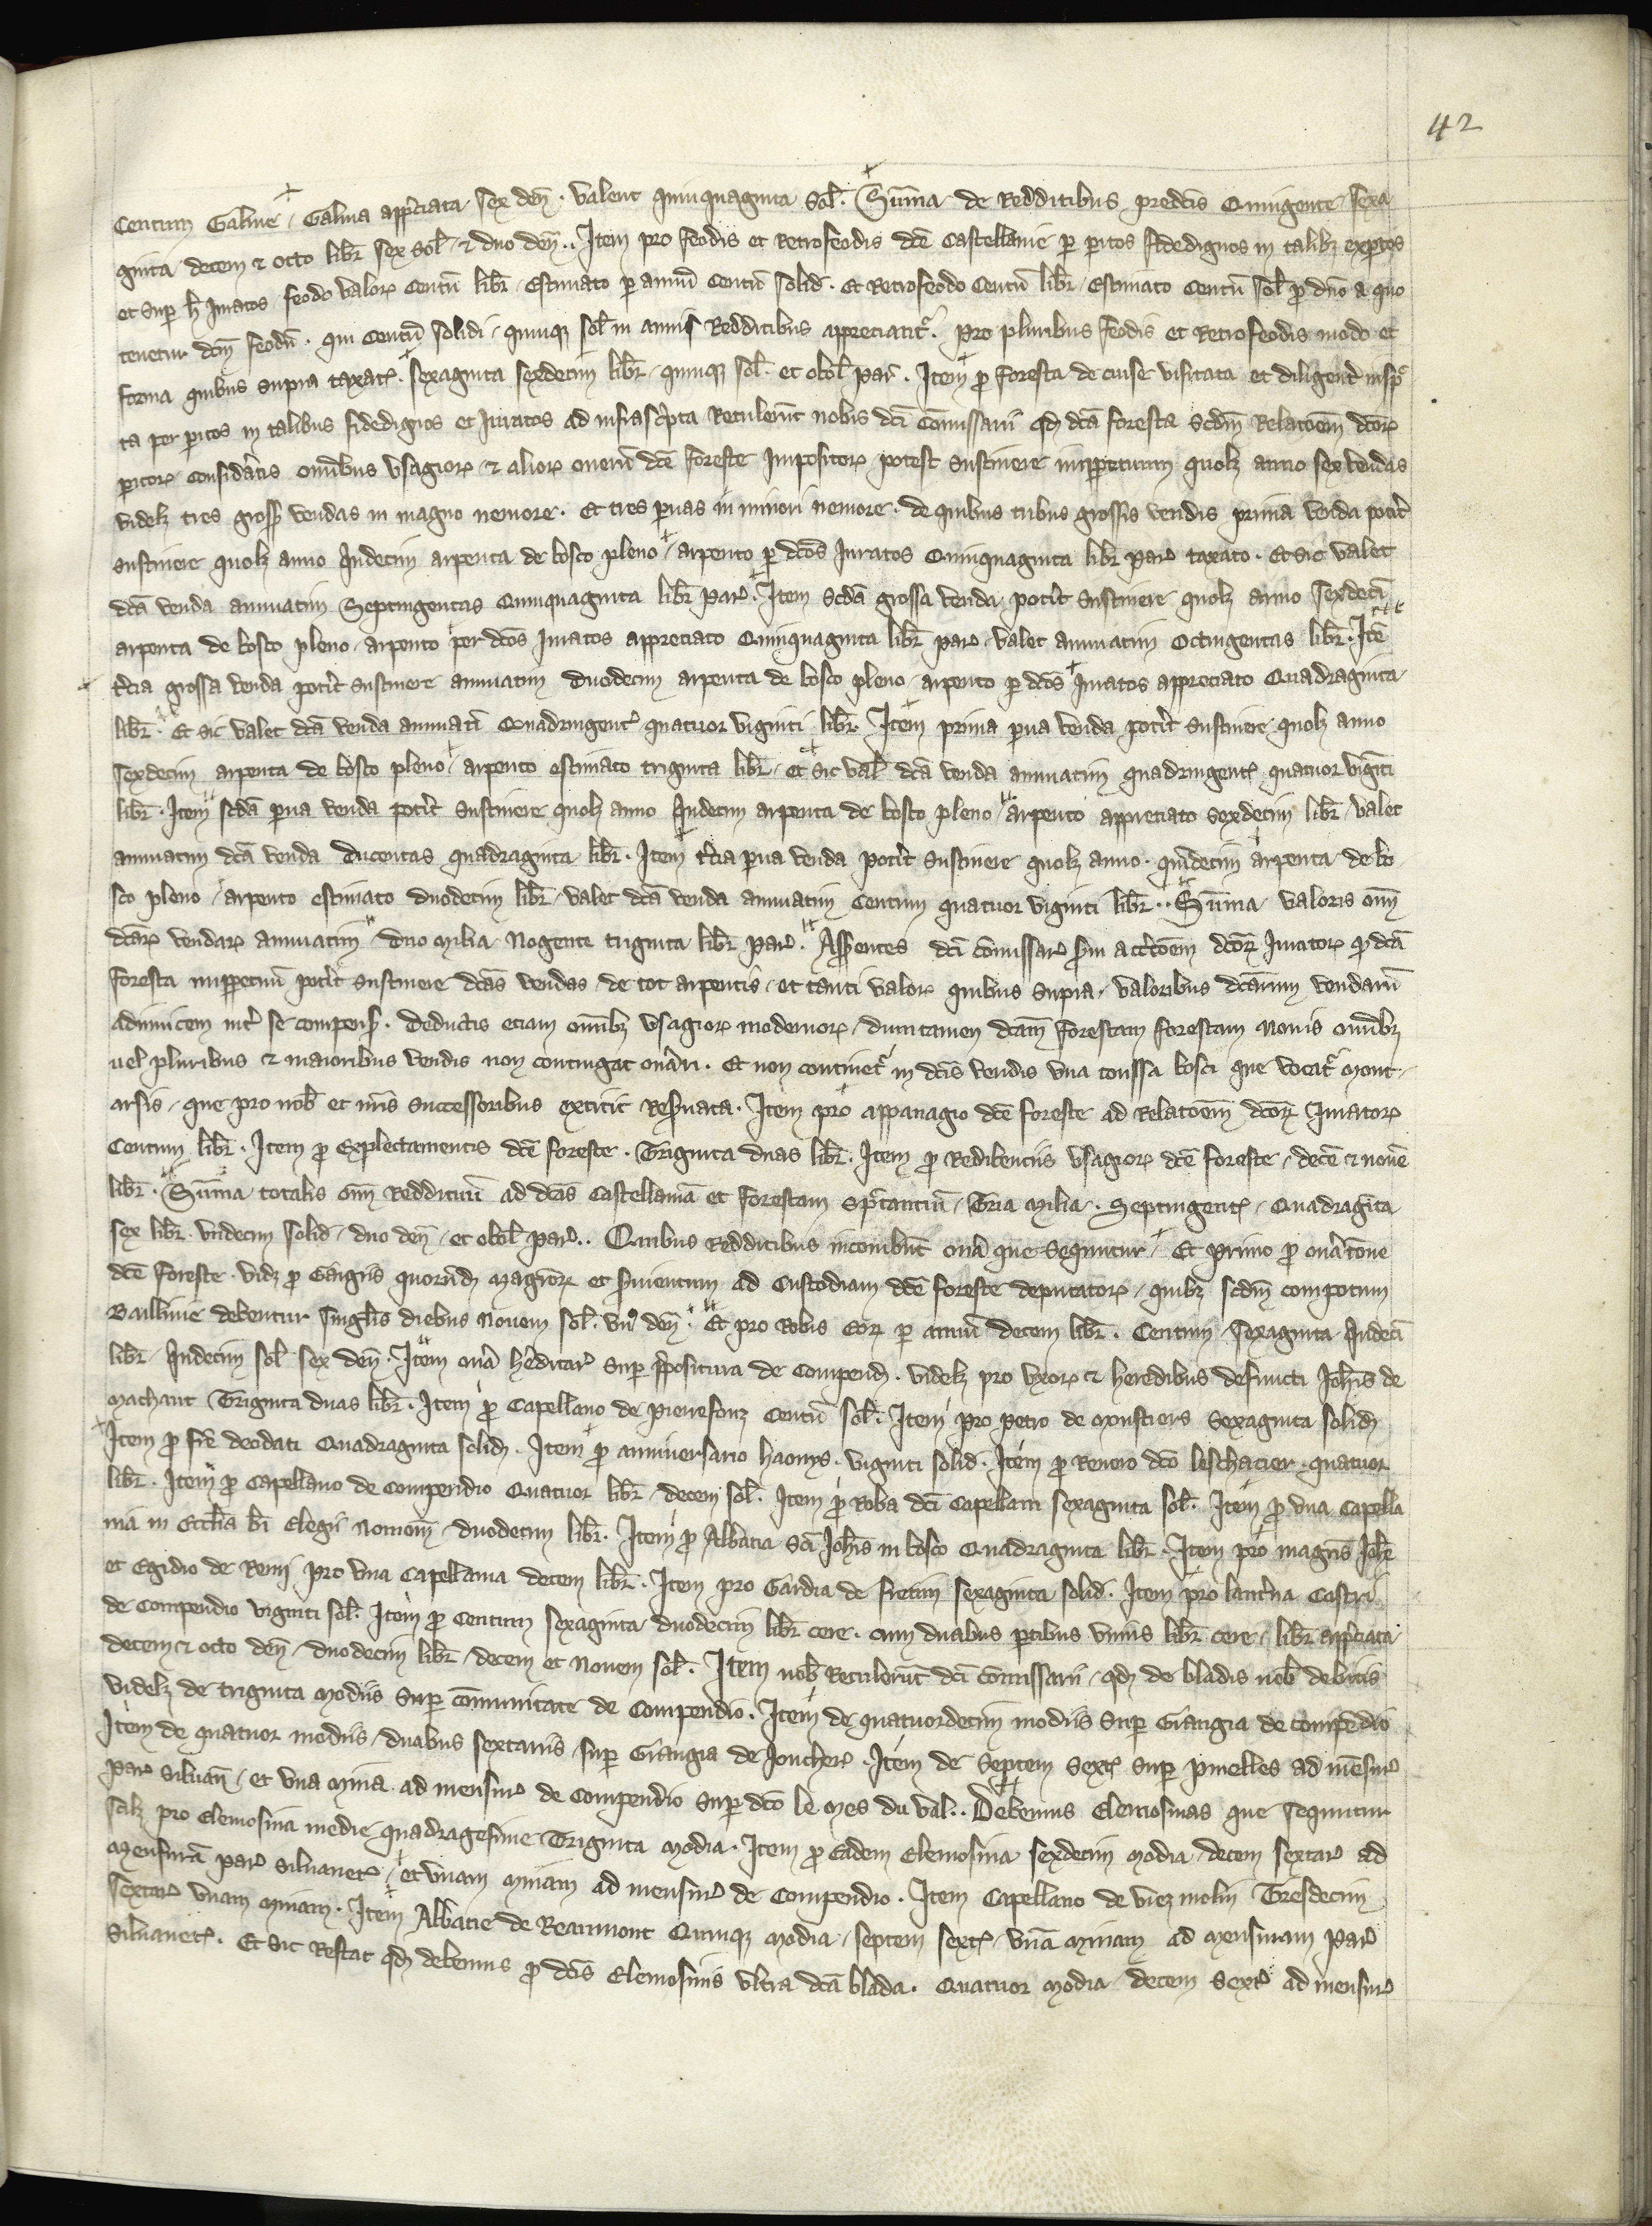 42
Centum Galine, Galina app̃ciata sex den̄. valent quinquaginta sol̃. Sum̃a de Redditibus predc̃is Quingente sexa
ginta decem & octo libr̃ sex sol̃ & duo den̄.. Item pro feodis et Retrofeodis dc̃e Castellanie per peritos fidedignos in talibz exp̃tos
et sup h̃ Juratos feodo valor̃ Centū libr̃ Estimato p annū Centū solid. Et Retrofeodo Centū libr̃ Estimato Centū sol̃ p dño a quo
tenetur dc̃m feodū. qui Centū solidi quinqz sol̃ in annis Redditibus appreciatr̃. Pro pluribus feodis et Retrofeodis modo et
forma quibus supra taxat̃. sexaginta sexdecim libr̃ quinqz sol̃. et obol̃ par̃. Item p foresta de cuise visitata et diligent̃ insp̃c
ta per peritos in talibus fidedignos et Juratos ad infrasc̃pta Retulerūt nobis dc̃i Com̃issarii qd dc̃a foresta scdm̃ Relac̃oem dc̃or̃
peritor̃ Considatis on̄ibus vsagior̃ & alior̃ onerū dc̃e foreste Impositor̃ potest sustinere imppetuum quolz anno sex vendas
videlz tres gross̃ vendas in magno nemore. Et tres paruas in minori nemore. de quibus tribus grossis vendis prima venda potit̃
sustinere quolz anno quindecim arpenta de bosco pleno arpento p dc̃os Juratos Quinquaginta libr̃ par̃ taxato. Et sic valet
dc̃a venda annuatim Septingentas Quinquaginta libr̃ par̃. Item scd̃a grossa venda potit̃ sustinere quolz anno sexdeci
arpenta de bosco pleno arpento per dc̃os Juratos appreciato Quinquaginta libr̃ par̃ valet annuatim Octingentas libr̃. Ite
t̃cia grossa venda potit̃ sustinere annuatim duodecim arpenta de bosco pleno arpento p dc̃os Juratos appreciato Quadraginta
libr̃. Et sic valet dc̃a venda annuati Quadringent̃ quatuor viginti libr̃. Item prima parua venda potit̃ sustinere quolz anno
sexdecim arpenta de bosco pleno arpento estimato triginta libr̃ et sic val̃ dc̃a venda annuatim quadringent̃ quatuor viginti
libr̃. Item scd̃a parua venda potit̃ sustinere quolz anno quindecim arpenta de bosco pleno arpento appreciato sexdecim libr̃ valet
annuatim dc̃a venda ducentas quadraginta libr̃. Item t̃cia parua venda potit̃ sustinere quolz anno. quīdecim arpenta de bo
sco pleno arpento estimato duodecim libr̃ valet dc̃a venda annuatim Centum quatuor viginti libr̃.. Sum̃a valoris om̃
dc̃ar̃ vendar̃ annuatim duo milia Nogente triginta libr̃ par̃. Asserentes dc̃i com̃issar̃ dc̃or̃ Juratorr̃ qd dc̃a
foresta imppetuū potit̃ sustinere dc̃as vendas de tot arpentis et tanti valor̃ quibus supra. valoribus dc̃arum vendarū
adinuicem int̃ se compens̃. Deductis etiam on̄ibz vsagior̃ modernor̃ dumtamen dc̃am forestam forestam nouis on̄ibz
uel pluribus & maioribus vendis non contingat on̄ari. Et non continet̃ in dc̃is vendis vna toussa bosci que vocat̃ mont
arsis que pro nob̃ et nr̃is successoribus extitit Res̃uata. Item pro appanagio dc̃e foreste ad Relac̃oem dc̃or̃ Jurator̃
Centum libr̃. Item p Explectamentis dc̃e foreste. Triginta duas libr̃. Item p Redibentiis vsagior̃ dc̃e foreste decē & nouē
libr̃. Sum̃a totalis om̃ Reddituū ad dc̃as Castellaniā et forestam sp̃tantiū Tria milia. Septingent̃ Quadraginta
sex libr̃. vndecim solid duo den̄ et obol̃ par̃.. Quibus Redditibus incombūt on̄a que sequntur Et primo p on̄atione
dc̃e foreste. vidz p Gagiis quorūd̃ magror̃ et s̃uientum ad Custodiam dc̃e foreste deputator̃ quibz scdm̃ compotum
Balliuie debentur singlis diebus nouem sol̃. vn̄9 den̄. Et pro Robis Eorz p annū decem libr̃. Centum sexaginta quindeci
libr̃ quindecim sol̃ sex den̄. Item on̄a h̃editar̃ sup p̃positura de Compend̃. videlz pro vxor̃ & heredibus defuncti Joh̃is de
machaut Triginta duas libr̃. Item p Capellano de pierrefonz Centū sol̃. Item pro petro de monstiers sexaginta solid̃
Item p fr̃e deodati Quadraginta solid̃. Item p anniuersario haouys. viginti solid̃. Item p Renero dc̃o leschacier quatuor
libr̃. Item p Capellano de Compendio Quatuor libr̃ decem sol̃. Item p Roba dc̃i Capellani sexaginta sol̃. Item p vna Capella
nia in Eccl̃ia bi Elegii nouiom̃ duodecim libr̃. Item p Abbatia Sc̃i Joh̃is in bosco Quadraginta libr̃. Item pro magris Joh̃e
et Egidio de Remi pro vna Capellania decem libr̃. Item pro Gardia de fretim sexaginta solid. Item pro lant̃na Castri
de Compendio viginti sol̃. Item p Centum sexaginta duodecim libr̃ cere. cum duabus ptibus vnius libr̃ cere, libr̃ app̃ciata
decem & octo den̄ duodecim libr̃ decem et Nouem sol̃. Item nob̃ Retulerūt dc̃i com̃issarii qd de bladis nob̃ debitis
videlz de triginta modiis sup com̃unitate de Compendio. Item de quatuordecim modiis sup Grangia de compēdio
Item de quatuor modiis duabus sextariis sup Grangia de Joncher̃. Item de septem sext̃ sup pruelles ad mēsur̃
par̃ siluan̄ et vna mina ad mensur̃ de Compendio sup dc̃o le mes du val.. Debemus Elemosinas que sequntur
scilz pro Elemosina medie quadragesime Triginta modia. Item p Eadem Elemosina sexdecim modia decem sextar̃ ad
mensurā par̃ siluanet̃ et vnam minam ad mensur̃ de Compendio. Item Capellano de viez molin Tresdecim
sextar̃ vnam minam. Item Abbatie de Reaumont Quinqz modia septem sext̃ vnā minam ad mensuram par̃
siluanet̃. Et sic Restat qd debemus p dc̃is Elemosinis vltra dc̃a blada. Quatuor modia decem sext̃ ad mensur̃